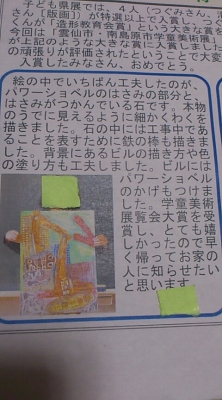 子ども県展では、4人（つぐみさん、
さん「版画」）が特選以上で入賞し、
くんが「造形教育会賞」という大きな賞を
今回は「雲仙市・南島原市学童美術展」
が上記のような大きな賞に入賞しました
の頑張りが評価されたということで大変
入賞したみなさん、おめでとう。
絵の中でいちばん工夫したのが、
パワーショベルのはさみの部分と、
はさみがつかんでいる石です。本物
のうでに見えるように細かくわくを
描きました。石の中には工事中であ
ることを表すために鉄の棒も描きま
した。背景にあるビルの描き方や色
の塗り方も工夫しました。ビルには
パワーショベル
のかげもつけま
した。学童美術
展覧会大賞を受
賞し、とても嬉
しかったので早
く帰ってお家の
人に知らせたい
と思います。